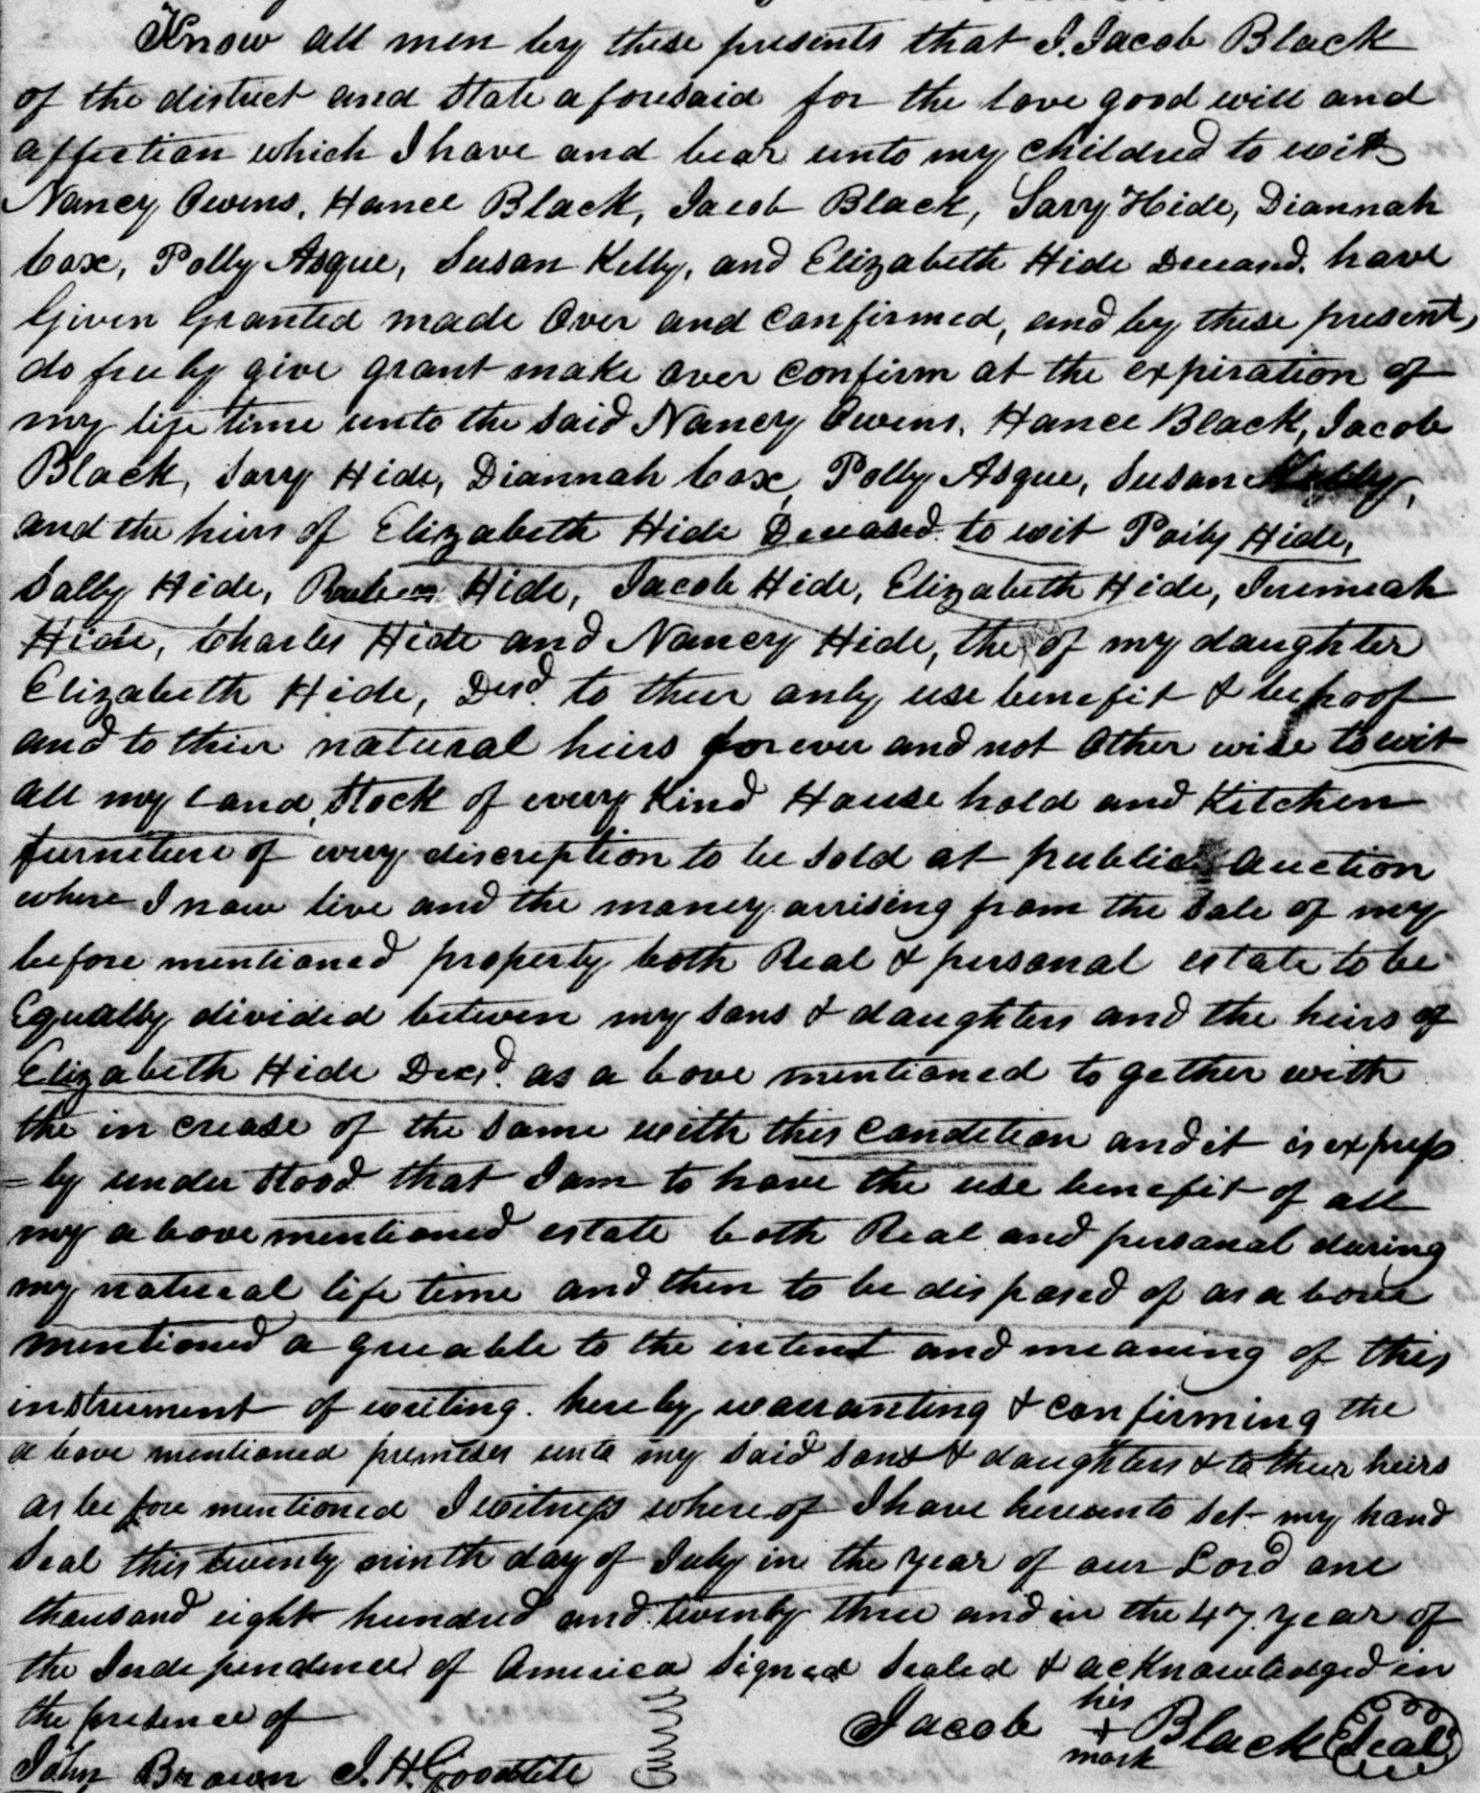 Know all men by these presents that I. Jacob Black
of the district and State aforesaid for the love good will and
affection which I have and bear unto my children to wit
Nancy Owens, Hance Black, Jacob Black, Sarry Hide, Diannah
Cox, Polly Asque, Susan Kelly, and Elizabeth Hide Deceased. have
Given Granted made Over and Confirmed, and by these presents
do freely give grant make over confirm at the expiration of
my life time unto the said Nancy Owens, Hance Black, Jacob
Black, Sarry Hide, Diannah Cox, Polly Asque, Susan Kelly,
and the heirs of Elizabeth Hide Deceased. to wit Polly Hide,
Sally Hide, Reuben Hide, Jacob Hide, Elizabeth Hide, Jeremiah
Hide, Charles Hide and Nancy Hide, the of my daughter
Elizabeth Hide, Decd. to their only use benefit & behoof
and to their natural heirs forever and not Other wise to wit
all my land, Stock of every Kind House hold and Kitchen
furniture of every discreption to be Sold at public Auction
where I now live and the money arrising from the Sale of my
before mentioned property both Real & personal estate to be
Equally divided between my Sons & daughters and the heirs of
Elizabeth Hide Decd. as a bove mentioned together with
the in crease of the Same with this Condition and it is express
=ly under Stood that I am to have the use benefit of all
my a bove mentioned estate both Real and personal during
my natural life time and then to be disposed of as a bove
mentioned a greeable to the intent and meaning of this
instrument of writing. hereby warranting & confirming the
a bove mentioned premises unto my Said Sons & daughters & to their heirs
as be fore mentioned I witness where of I have hereunto Set my hand
Seal this twenty ninth day of July in the year of our Lord one
thousand eight hundred and twenty three and in the 47 year of
the Independence of America Signed Sealed & acknowledged in
the presence of
Jacob his + mark Black (Seal)
John Brown J. H. Goodlett